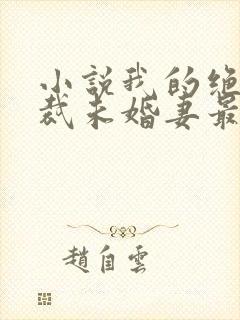 小説我的绝
裁未婚妻最
趙自雲